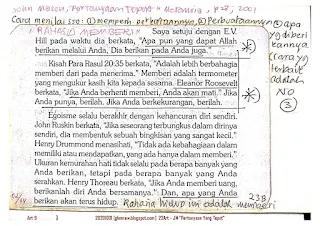 John Mason, "Pertanyaan Tepat" - Metanoia, p.22, 2001
Cara menilai SDI : ① mempelj. perkataannya, ② Perbuatannya ③ apa
"RAHASIA MEMBERI" Saya setuju dengan E.V.
Hill pada waktu dia berkata, "Apa pun yang dapat Allah
berikan melalui Anda, Dia berikan pada Anda juga."
yg diberi
kannya
(cara yg
terbaik
adalah
NO
③
Kisah Para Rasul 20:35 berkata, "Adalah lebih berbahagia
memberi dari pada menerima." Memberi adalah termometer
yang mengukur kasih kita kepada sesama. Eleanor Roosevelt
berkata, "Jika Anda berhenti memberi, Anda akan mati." Jika
Anda punya, berilah. Jika Anda berkekurangan, berilah.
Egoisme selalu berakhir dengan kehancuran diri sendiri.
John Ruskin berkata, "Jika seseorang terbungkus dalam dirinya
sendiri, dia membentuk sebuah bingkisan yang sangat kecil."
Henry Drummond menasihati, "Tidak ada kebahagiaan dalam
memiliki atau mendapatkan, yang ada hanya dalam memberi."
Ukuran kemurahan hati tidak selalu pada berapa banyak yang
Anda berikan, tetapi pada berapa banyak yang Anda
serahkan. Henry Thoreau berkata, "Jika Anda memberi uang,
berikanlah diri Anda bersamanya." Dan, apa yang Anda
berikan akan terus hidup. Rahasia hidup ini adalah memberi
23B